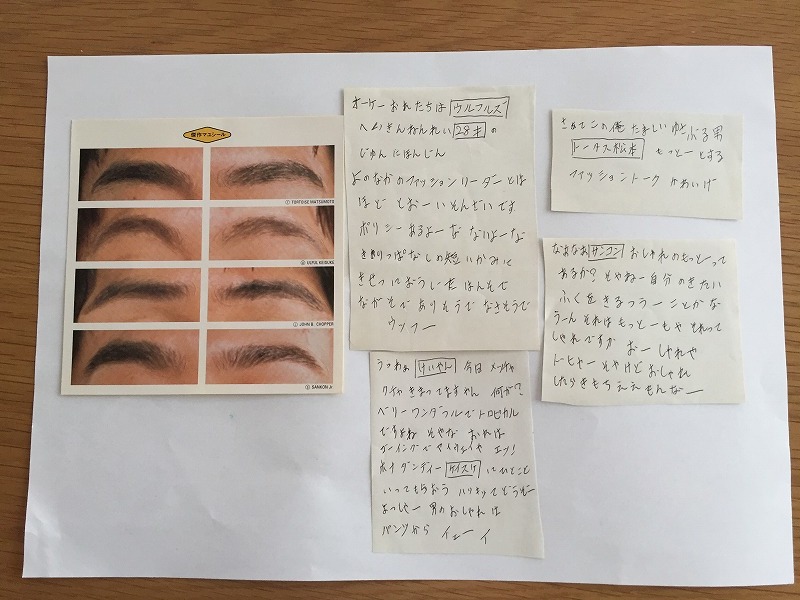 傑作マユシール
① TORTOISE MATSUMOTO
② ULFUL KEISUKE
③ JOHN B. CHOPPER
④ SANKON Jr.
オーケー おれたちは ウルフルズ
へいきんねんれい 28才 の
じゅんにほんじん
よのなかのファッションリーダーとは
ほど とおーい そんざいです
ポリシー あるよーな ないよーな
きりっぱなしの短いかみに
きせつにおうじた ほんそで
ながそで ありそうで なさそうで
ウッフー
うっわぁ けいやん 今日 メッチャ
クチャ きまってますやん 何か?
ベリー ワンダフルで トロピカル
ですよね そやな おやは
ゴーイングでマイウェイや エッ!
ボイ ダンディー ケイスケ にひとこと
いってもらおう ハリキッてどうぞー
よっしゃー 男のおしゃれは
パンツから イェーイ
さめてこの俺 たましいゆさぶる男
トータス松本 もっとーとする
ファッショントーク かあいげ
なあなあ サンコン おしゃれのもっとーって
あるか? そやねー 自分のきたい
ふくをきるっつー ことかな
うーん それはもっとーもや それって
しゃれですか おー しゃれや
トヒャー そやけど おしゃれ
したらきもちええもんなー